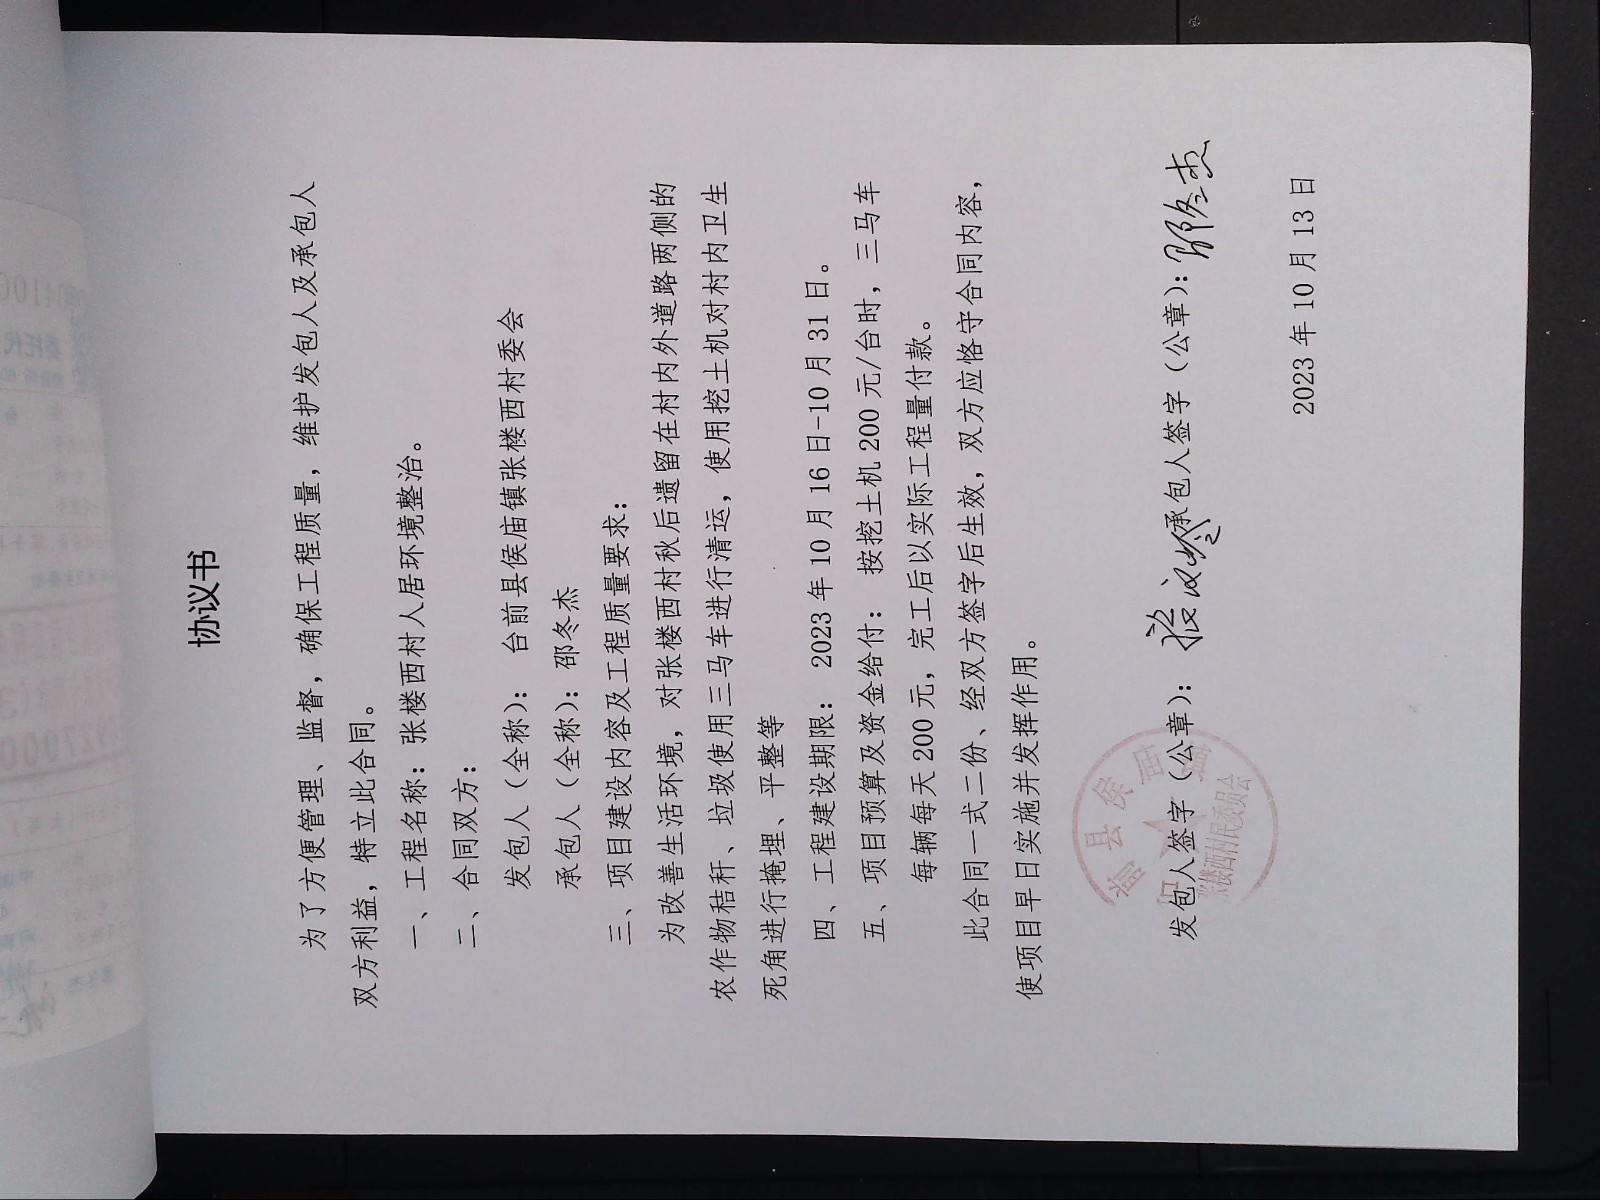 协议书
为了方便管理、监督，确保工程质量，维护发包人及承包人
双方利益，特立此合同。
一、工程名称：张楼西村人居环境整治。
二、合同双方：
发包人（全称）： 台前县侯庙镇张楼西村委会
承包人（全称）：邵冬杰
三、项目建设内容及工程质量要求：
为改善生活环境，对张楼西村秋后遗留在村内外道路两侧的
农作物秸秆、垃圾使用三马车进行清运，使用挖土机对村内卫生
死角进行掩埋、平整等
四、工程建设期限： 2023 年 10 月 16 日-10 月 31 日。
五、项目预算及资金给付： 按挖土机 200 元/台时，三马车
每辆每天 200 元，完工后以实际工程量付款。
此合同一式二份、经双方签字后生效，双方应恪守合同内容，
使项目早日实施并发挥作用。
发包人签字（公章）： 承包人签字（公章）：邵冬杰
县侯庙镇
张楼西村民委员会
2023 年 10 月 13 日